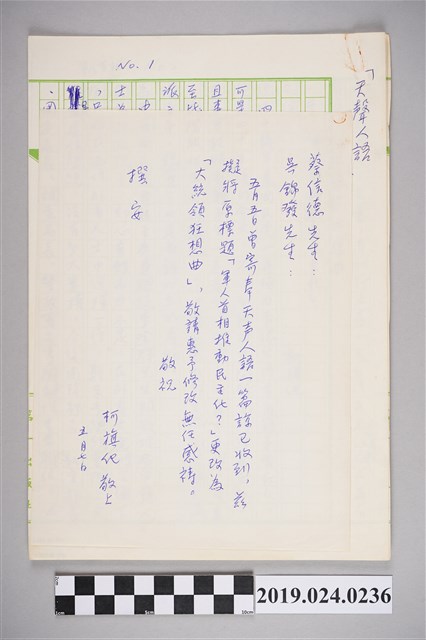 「天聲人語
No. 1
蔡信德先生：
吳錦發先生：
五月五日曾寄奉天声人語一篇諒已收到。茲
擬將原標題「軍人首相推動民主化？」更改為
「大統領狂想曲」，敬請惠予修改無任感禱。
敬祝
撰安
柯旗化敬上
五月七日
2019.024.0236